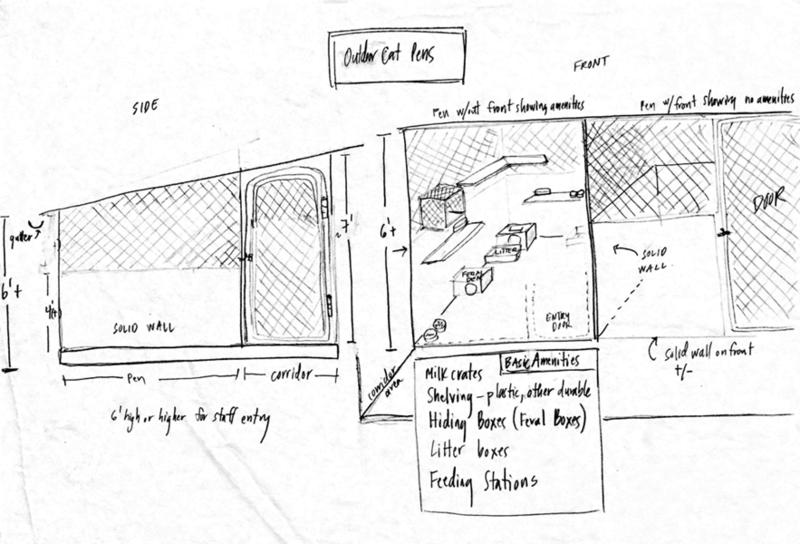 Outdoor Cat Pens
SIDE
FRONT
Pen w/out front showing amenities
Pen w/front showing no amenities
gutter
6'+
4'+
SOLID WALL
7'
Pen
corridor
6' high or higher for staff entry
6'+
LITTER
FERAL
BOX
ENTRY
DOOR
corridor
area
SOLID
WALL
DOOR
solid wall on front
+/-
Basic Amenities
Milk crates
Shelving - plastic, other durable
Hiding Boxes (Feral Boxes)
Litter boxes
Feeding Stations